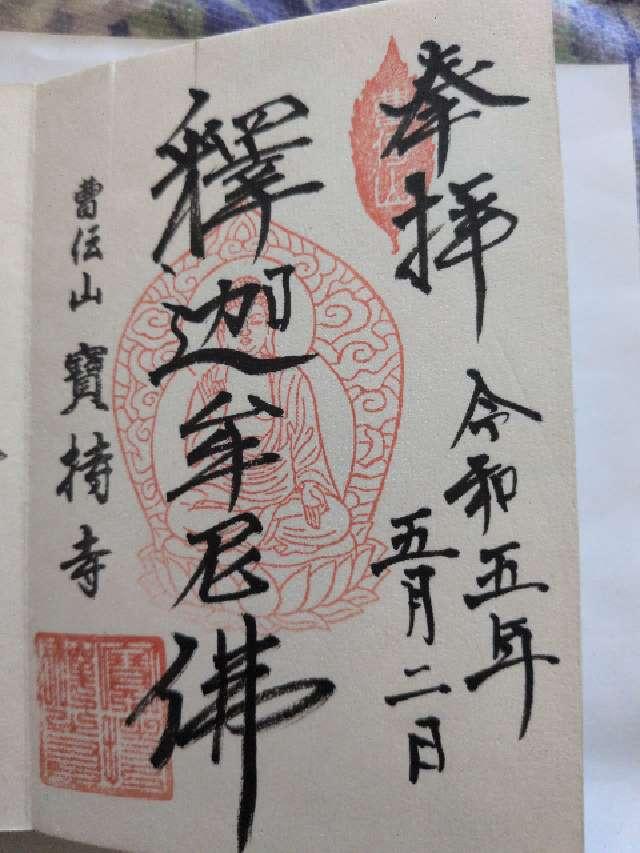 奉拝
令和五年
五月二日
釋迦牟尼佛
曹伝山 寶持寺